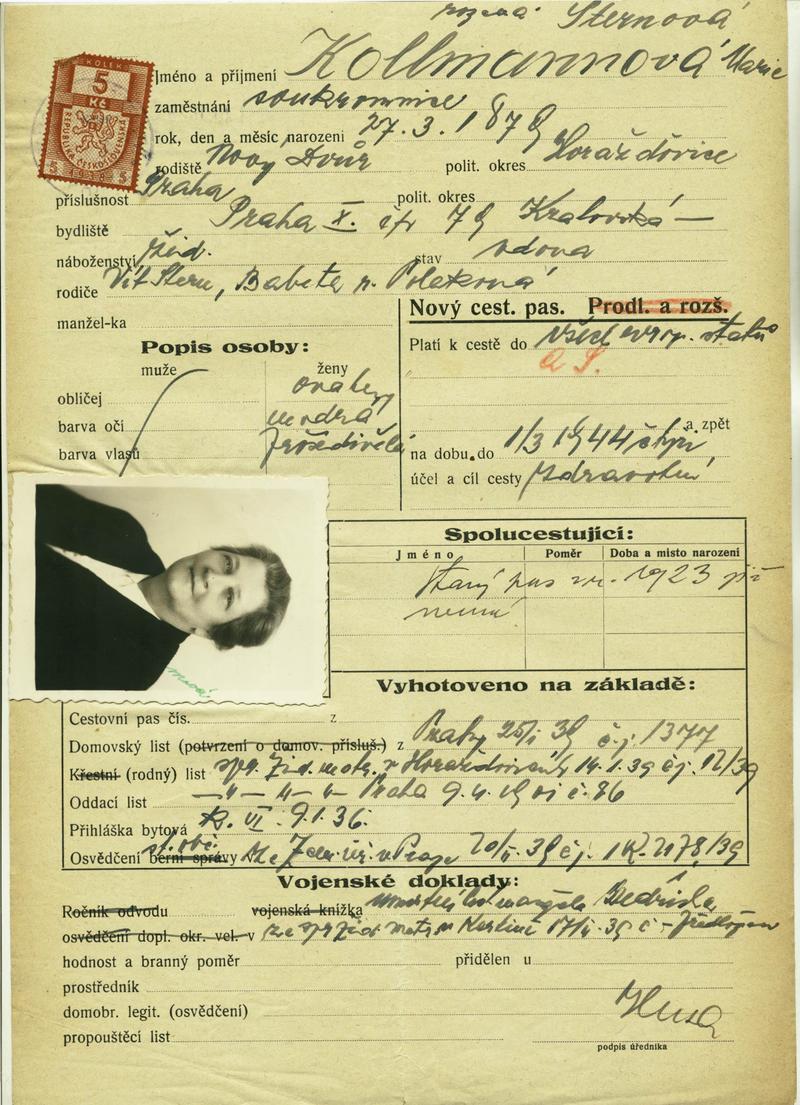 rozená Sternová
Jméno a příjmení Kollmannová Marie
KOLEK
5
Kč
REPUBLIKA ČESKOSLOVENSKÁ
5 1938 5
zaměstnání soukromnice
rok, den a měsíc narození 27. 3. 1879
rodiště Nový Dvůr polit. okres Horažďovice
příslušnost Praha polit. okres
bydliště Praha X. čp 79 Královská
náboženství žid. stav vdova
rodiče Vít Stern, Babeta r. Poláková
manžel-ka
Nový cest. pas. Prodl. a rozš.
Popis osoby:
Platí k cestě do všech evrop. států
muže ženy
a S.
obličej oválný
barva očí modrá
barva vlasů prošedivělá
a zpět
na dobu do 1/3 1944 čtyř
účel a cíl cesty zdravotní
Spolucestující:
Jméno Poměr Doba a místo narození
Starý pas z r. 1923 již
nemá
Vyhotoveno na základě:
Cestovní pas čís. z
Domovský list (potvrzení o domov. přísluš.) z Prahy 25/I 39 č.j. 1377
Křestní (rodný) list spr. žid. matr. v Horažďovicích 14.1.39 čj. 12/39
Oddací list Praha 9.4. č. 86
Přihláška bytová VI 9.1.36.
st. obč.
Osvědčení berní správy Ze Zem. úř. v Praze 20/II. 39 čj. 2178/39
Vojenské doklady:
Ročník odvodu vojenská knížka Úmrtní list manžela Bedřicha
osvědčení dopl. okr. vel. v ze spr. žid. matr. v Karlíně 17/II. 39 č - předložen
hodnost a branný poměr přidělen u
prostředník
domobr. legit. (osvědčení)
propouštěcí list
podpis úředníka